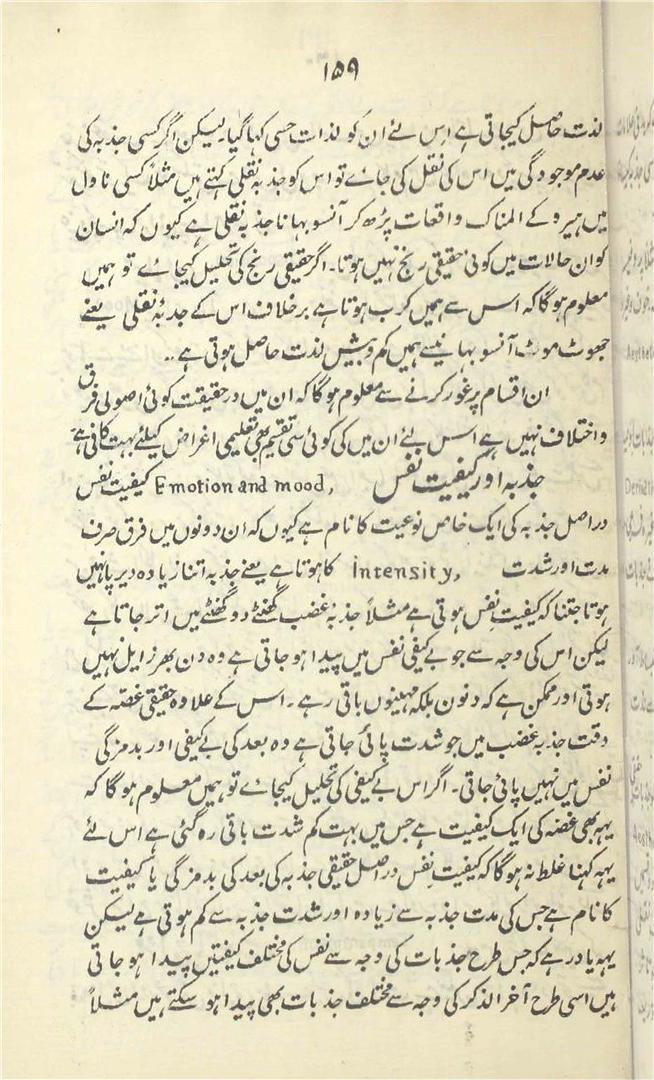 ۱۵۹
لذت حاصل کیجاتی ہے اس لئے ان کو لذات حسی کہا گیا۔ لیکن اگر کسی جذبہ کی
عدم موجودگی میں اس کی نقل کی جاے تو اس کو جذبہ نقلی کہتے ہیں مثلاً کسی ناول
میں ہیرو کے المناک واقعات پڑھ کر آنسو بہانا جذبہ نقلی ہے کیوں کہ انسان
کو ان حالات میں کوئی حقیقی رنج نہیں ہوتا۔ اگر حقیقی رنج کی تحلیل کیجاے تو ہمیں
معلوم ہوگا کہ اس سے ہمیں کرب ہوتا ہے برخلاف اس کے جذبۂ نقلی یعنے
جھوٹ موٹ آنسو بہانیسے ہمیں کم و بیش لذت حاصل ہوتی ہے ۔۔
ان اقسام پر غور کرنے سے معلوم ہوگا کہ ان میں در حقیقت کوئی اصولی فرق
و اختلاف نہیں ہے اس لئے ان میں کی کوئی سی تقسیم بھی تعلیمی اغراض کیلئے بہت کافی ہے
جذبہ اور کیفیت نفس Emotion and mood, کیفیت نفس
در اصل جذبہ کی ایک خاص نوعیت کا نام ہے کیوں کہ ان دونوں میں فرق صرف
مدت اور شدت Intensity, کا ہوتا ہے یعنے جذبہ اتنا زیادہ دیر پا نہیں
ہوتا جتنا کہ کیفیت نفس ہوتی ہے مثلاً جذبۂ غضب گھنٹے دو گھنٹے میں اتر جاتا ہے
لیکن اس کی وجہ سے جو بے کیفی نفس میں پیدا ہو جاتی ہے وہ دن بھر زایل نہیں
ہوتی اور ممکن ہے کہ دنوں بلکہ مہینوں باقی رہے۔ اس کے علاوہ حقیقی غصہ کے
وقت جذبہ غضب میں جو شدت پائی جاتی ہے وہ بعد کی بے کیفی اور بدمزگی
نفس میں نہیں پائی جاتی۔ اگر اس بے کیفی کی تحلیل کیجاے تو ہمیں معلوم ہوگا کہ
یہہ بھی غصہ کی ایک کیفیت ہے جس میں بہت کم شدت باقی رہ گئی ہے اس لئے
یہہ کہنا غلط نہ ہوگا کہ کیفیت نفس در اصل حقیقی جذبہ کی بعد کی بدمزگی یا کیفیت
کا نام ہے جس کی مدت جذبہ سے زیادہ اور شدت جذبہ سے کم ہوتی ہے لیکن
یہہ یاد رہے کہ جس طرح جذبات کی وجہ سے نفس کی مختلف کیفیتیں پیدا ہو جاتی
ہیں اسی طرح آخر الذکر کی وجہ سے مختلف جذبات بھی پیدا ہو سکتے ہیں مثلاً